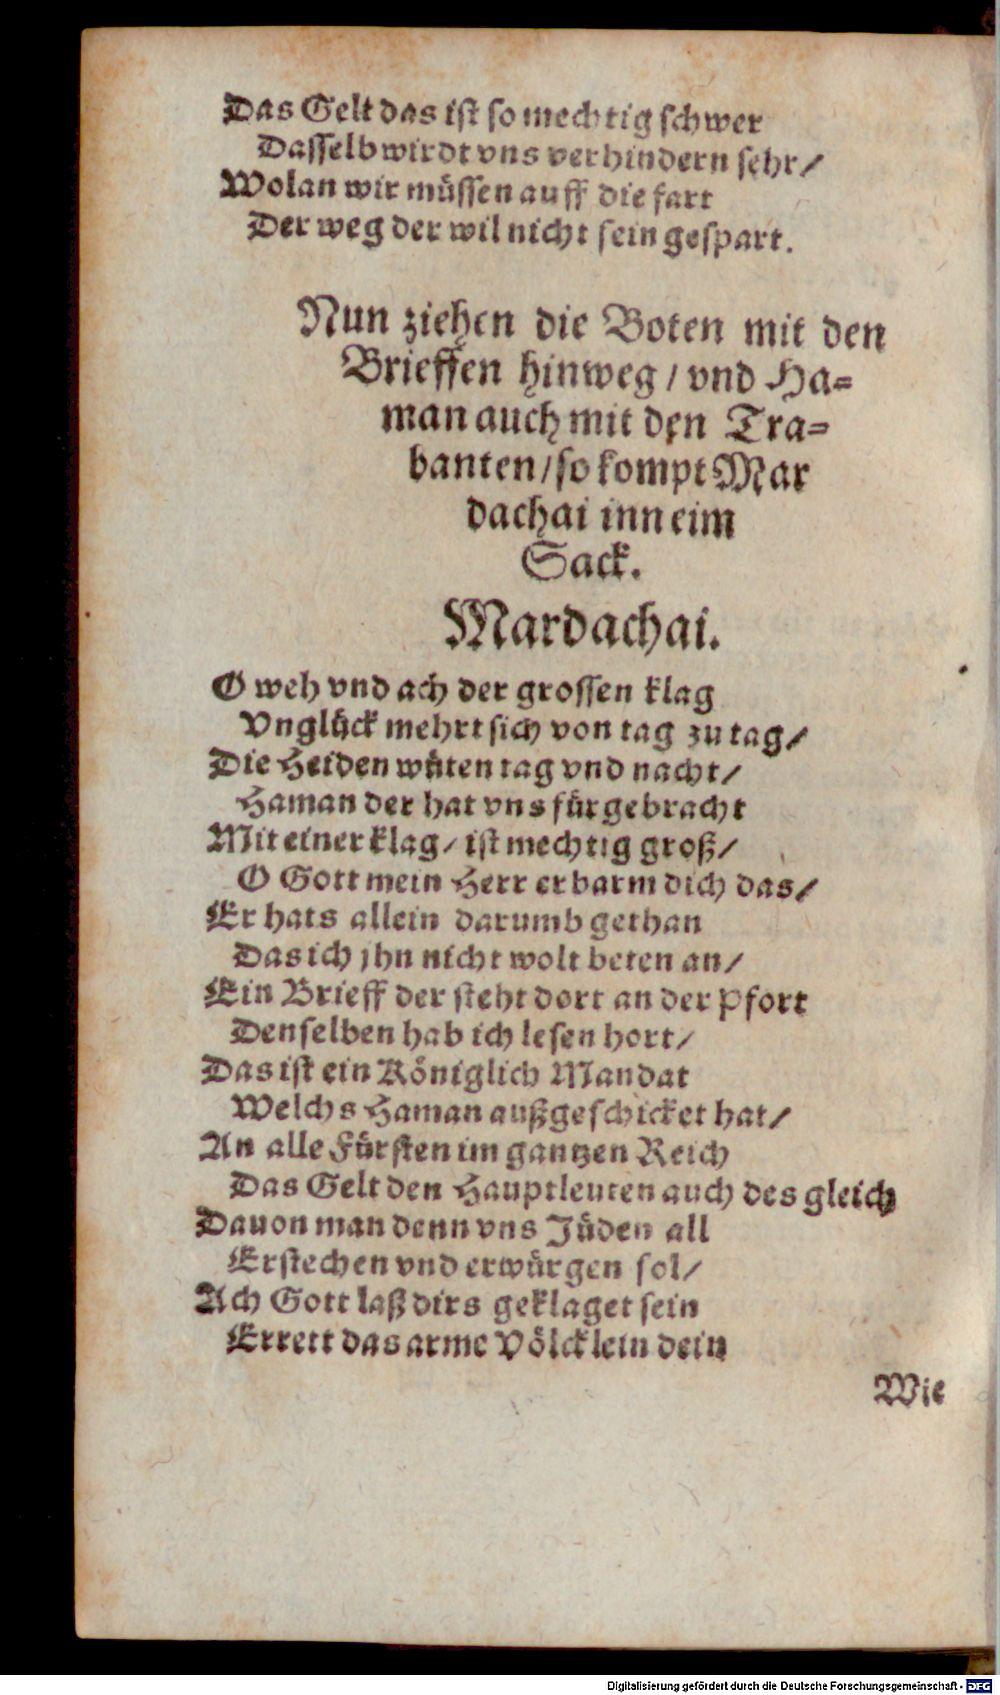 Das Gelt das ist so mechtig schwer
Dasselb wirdt vns verhindern sehr/
Wolan wir müssen auff die fart
Der weg der wil nicht sein gespart.
Nun ziehen die Boten mit den
Brieffen hinweg / vnd Ha=
man auch mit den Tra=
banten/so kompt Mar
dachai inn eim
Sack.
Mardachai.
O weh vnd ach der grossen klag
Vnglück mehrt sich von tag zu tag/
Die Heiden wüten tag vnd nacht/
Haman der hat vns fürgebracht
Mit einer klag/ ist mechtig groß/
O Gott mein Herr erbarm dich das/
Er hats allein darumb gethan
Das ich jhn nicht wolt beten an/
Ein Brieff der steht dort an der Pfort
Denselben hab ich lesen hort/
Das ist ein Königlich Mandat
Welchs Haman außgeschicket hat/
An alle Fürsten im gantzen Reich
Das Gelt den Hauptleuten auch des gleich
Dauon man denn vns Jüden all
Erstechen vnd erwürgen sol/
Ach Gott laß dirs geklaget sein
Errett das arme Völcklein dein
Wie
Digitalisierung gefördert durch die Deutsche Forschungsgemeinschaft - DFG